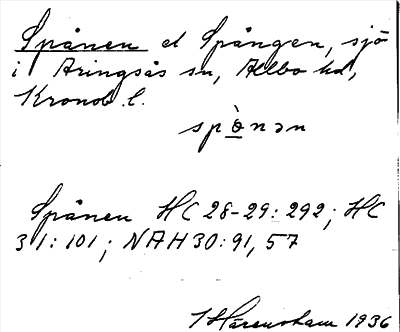 Spånen el Spången, sjö
i Aringsås sn, Allbo hd,
Kronob l.
spò̱nən
Spånen HC 28-29: 292; HC
31: 101; NAH 30: 91, 57
1936